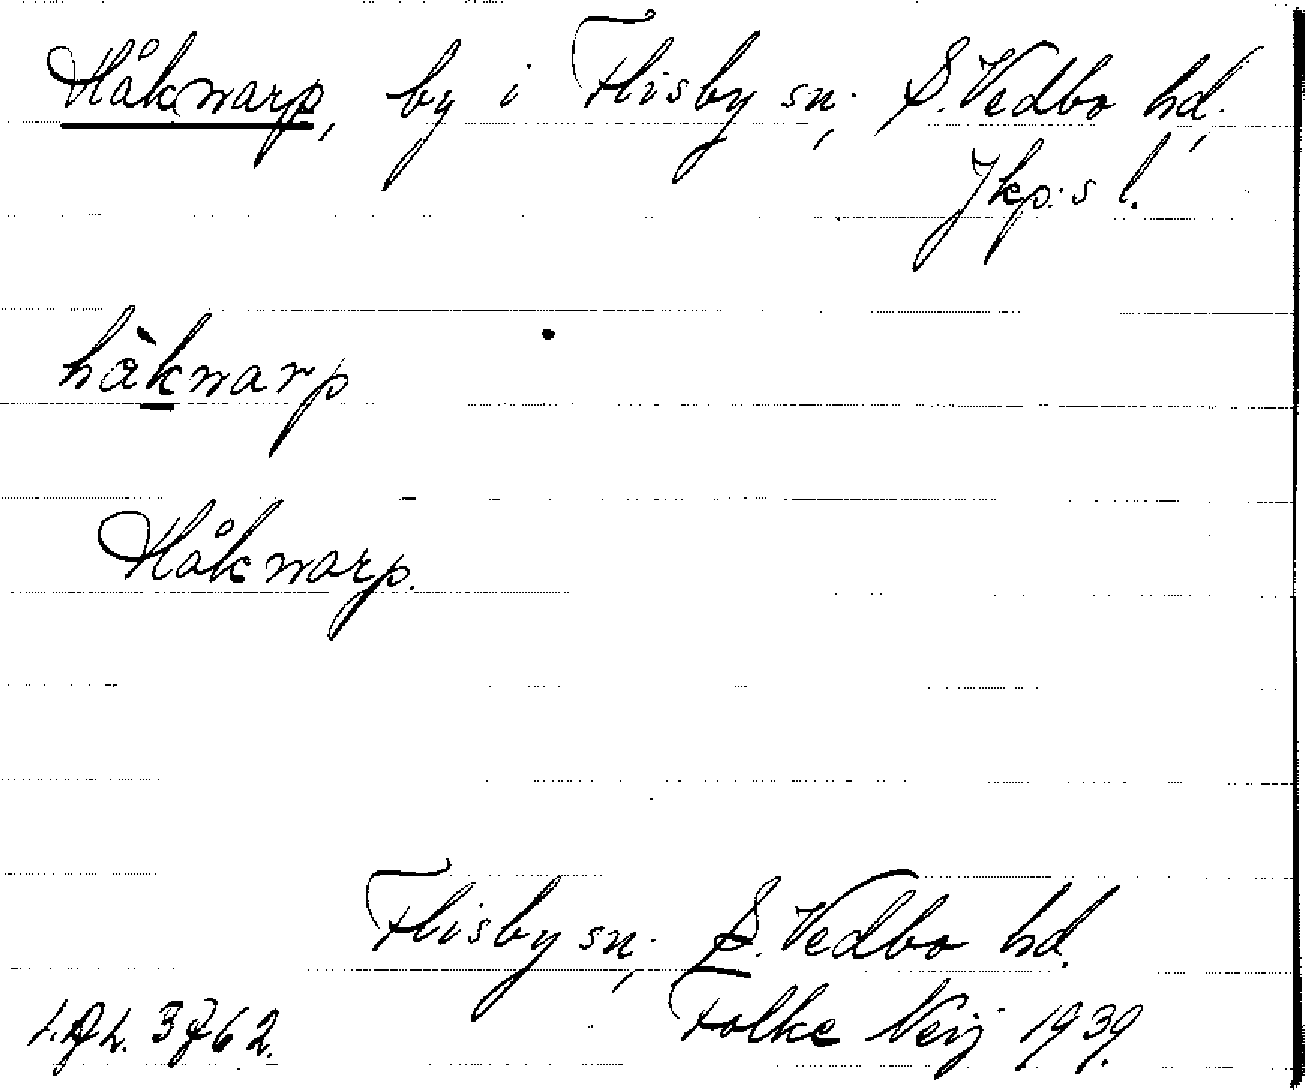 Håknarp, by i Flisby sn., S. Vedbo hd.,
Jkp:s l.
hàknarp
Håknarp.
Flisby sn., S. Vedbo hd.
Folke Neij 1939.